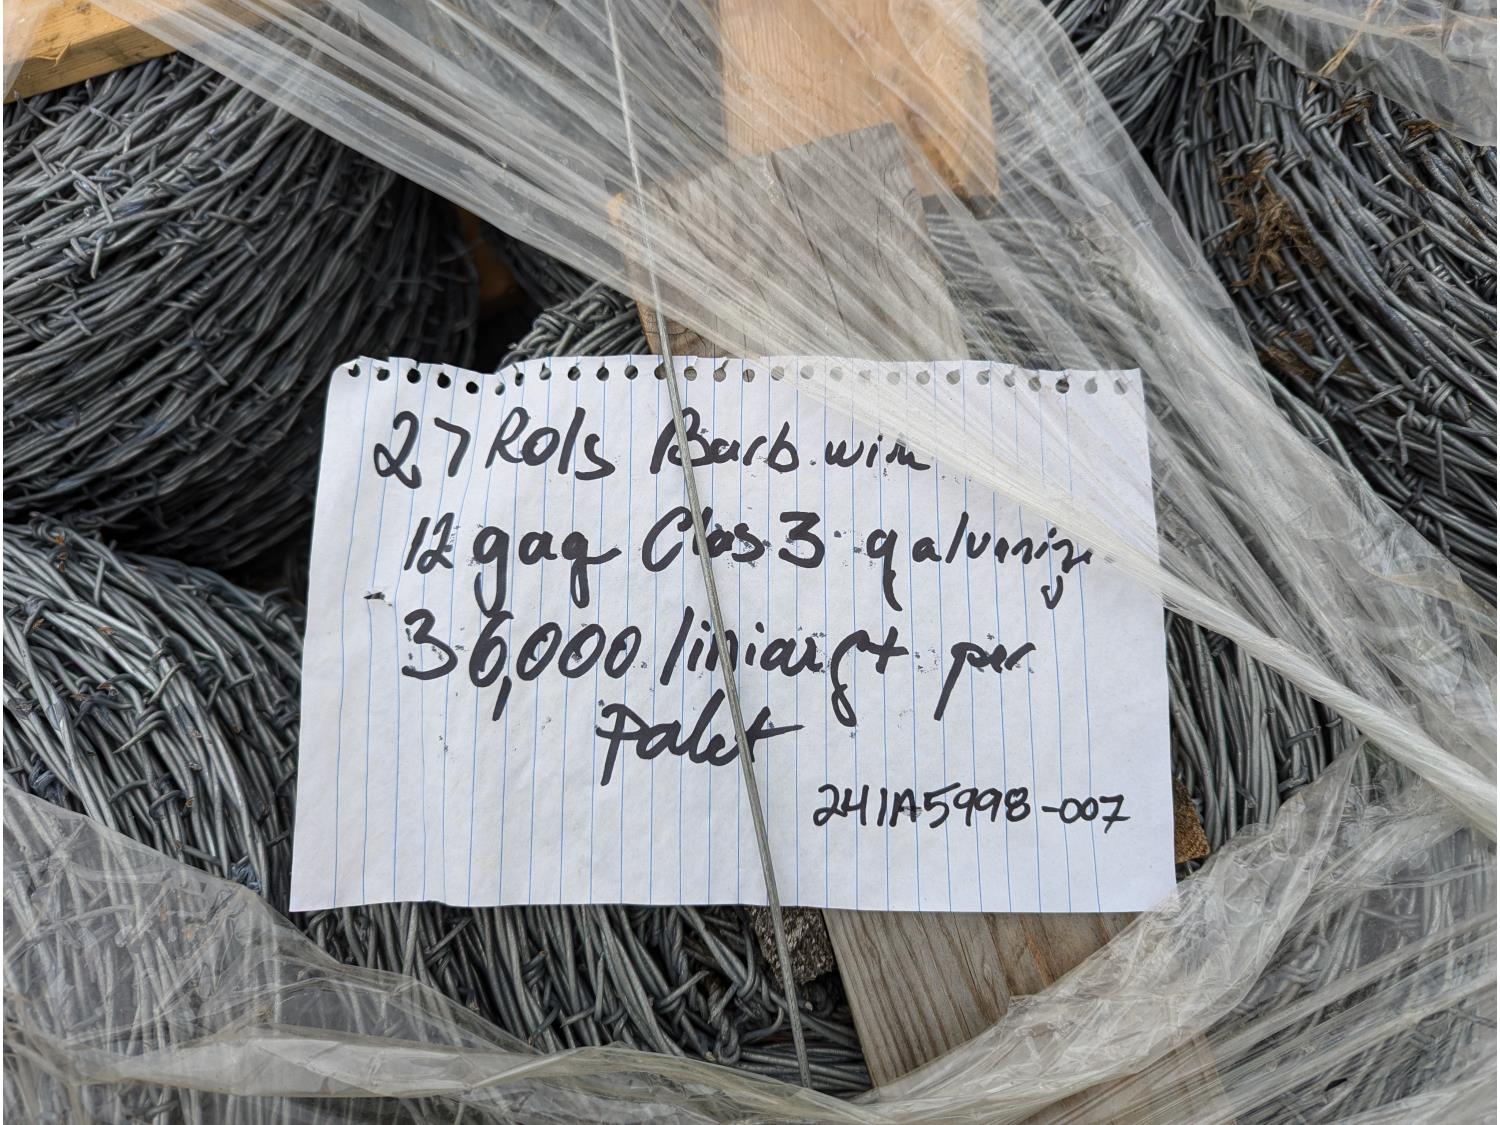 27 Rols Barb wire
12 gag Clas 3 galvanize
36,000 liniar ft per
Palet
241A5998-007